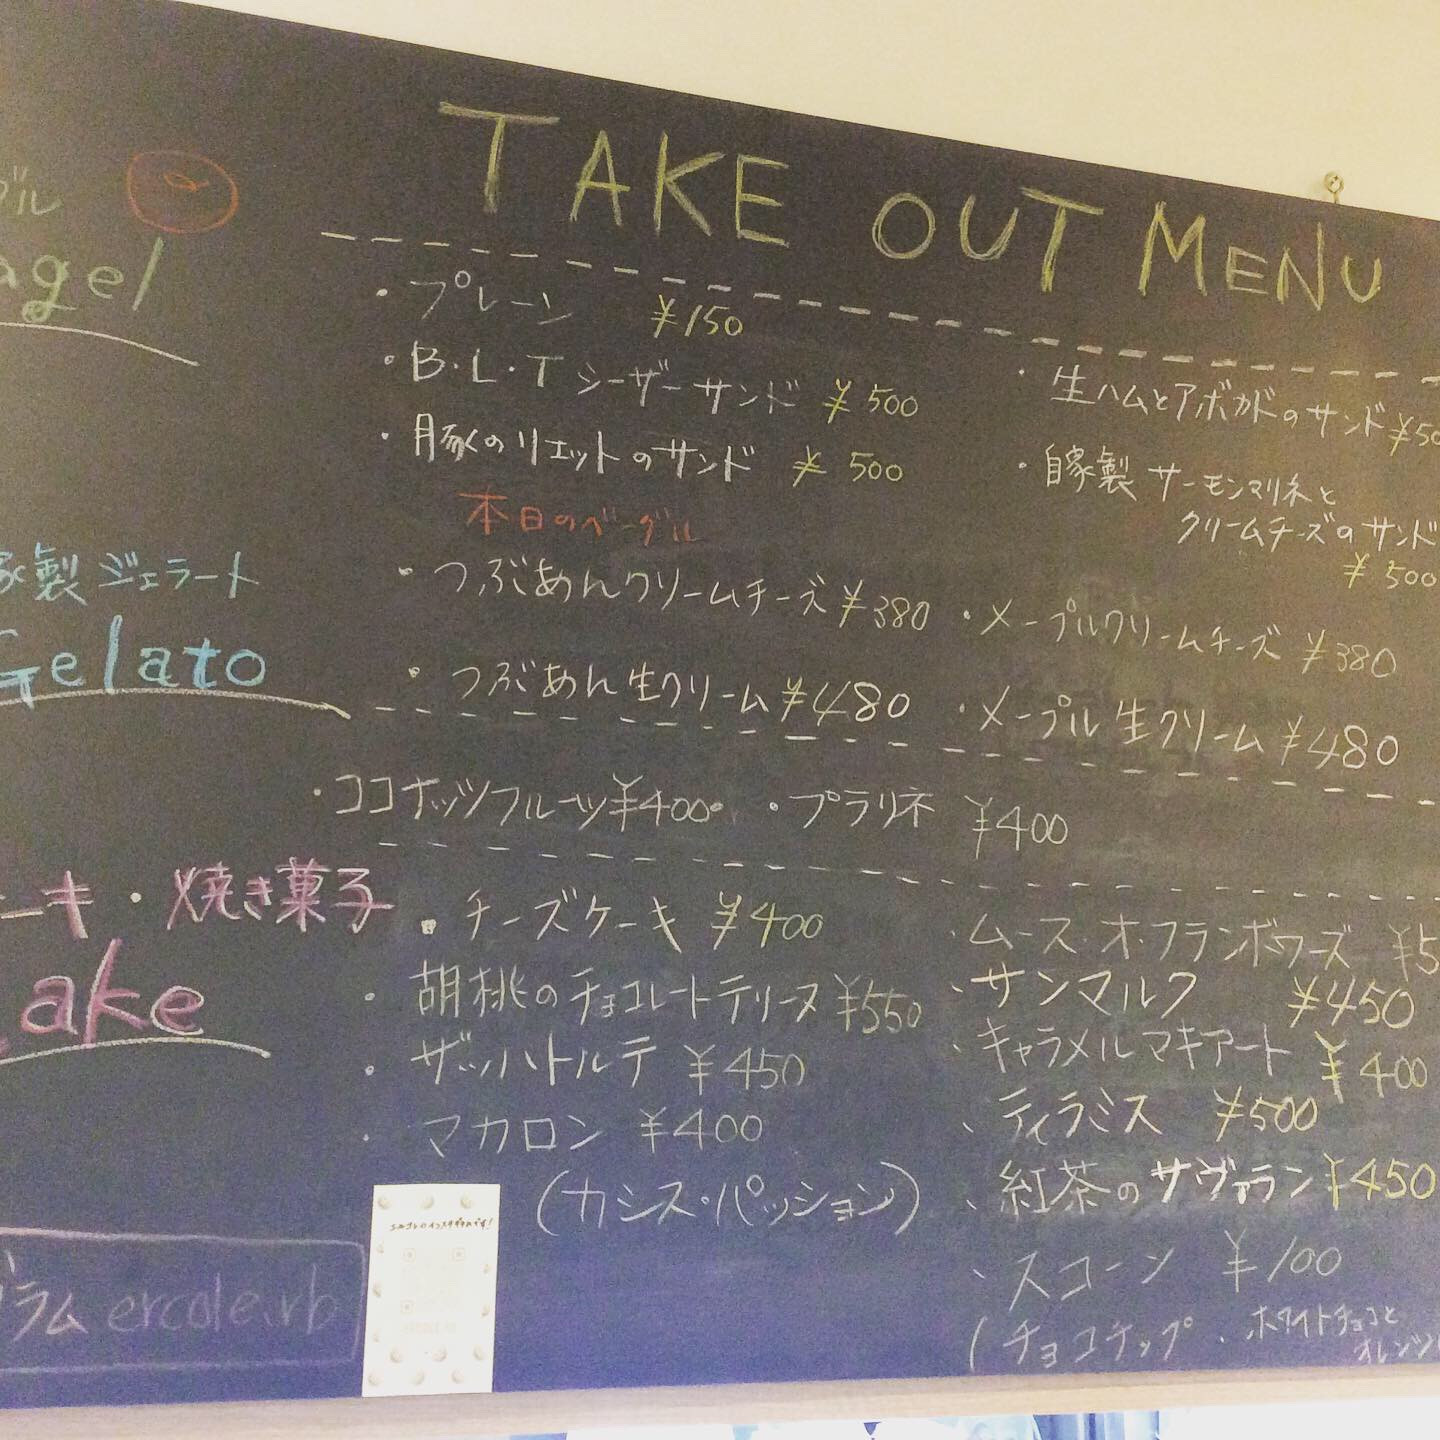 TAKE OUT MENU
グル
agel
・プレーン ¥150
・B・L・T シーザーサンド ¥500
・豚のリエットのサンド ¥500
・生ハムとアボカドのサンド
・自家製 サーモンマリネと
クリームチーズのサンド
¥500
本日のベーグル
・つぶあんクリームチーズ ¥380
・メープルクリームチーズ ¥380
・つぶあん生クリーム ¥480
・メープル生クリーム ¥480
家製ジェラート
Gelato
・ココナッツフルーツ ¥400
・プラリネ ¥400
ーキ・焼き菓子
ake
・チーズケーキ ¥400
・胡桃のチョコレートテリーヌ ¥550
・ザッハトルテ ¥450
・マカロン ¥400
(カシス・パッション)
・ムース・オ・フランボワーズ
・サンマルク ¥450
・キャラメルマキアート ¥400
・ティラミス ¥500
・紅茶のサヴァラン ¥450
・スコーン ¥100
(チョコチップ・ホワイトチョコと
オレンジ
グラム ercole.rb